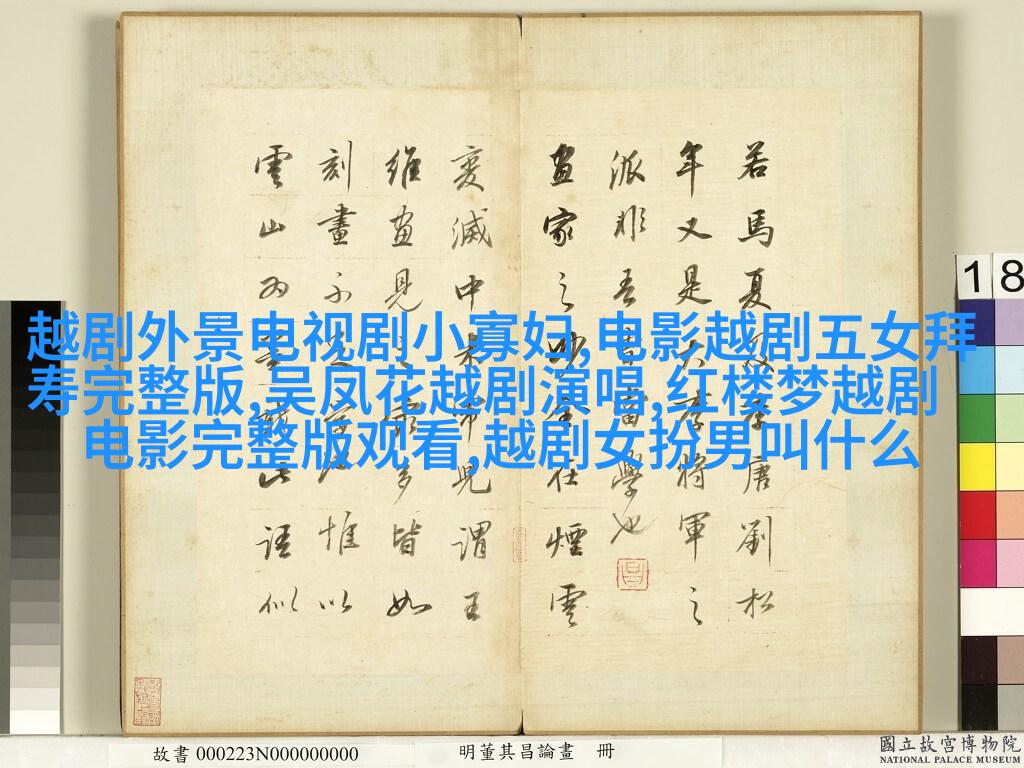 越剧外景电视剧小寡妇,电影越剧五女拜
寿完整版,吴凤花越剧演唱,红楼梦越剧
电影完整版观看,越剧女扮男叫什么
若馬夏及李唐劉松
年又是大李將軍之
派非吾曹當學也
畫家之妙全在煙雲
變滅中米兒謂王
維畫見之最多皆如
刻畫不足學惟以
雲山為墨戲此語似
18
故書 000223N000000000
明董其昌論畫 冊
國立故宮博物院
NATIONAL PALACE MUSEUM